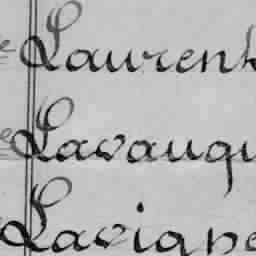 Laurent
Lavaugu
Lavigne